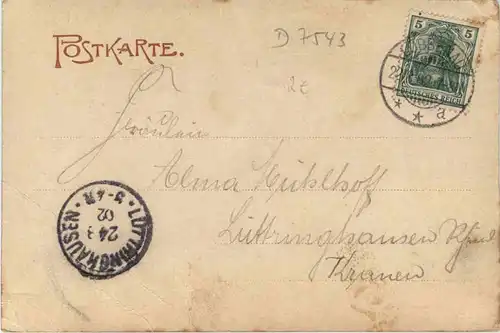 POSTKARTE.
D 7543
2e
5 5
DEUTSCHES REICH
* * a
Fräulein
Alma Mühlhoff
Lüttringhausen Rheinl
Kranen
LÜTTRINGHAUSEN
24 3
02
3-4N